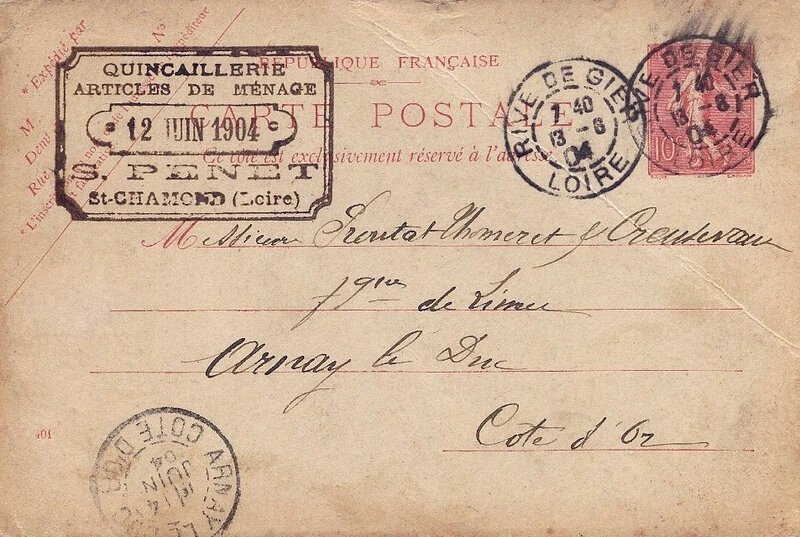 * Expédié par
No
M
QUINCAILLERIE
ARTICLES DE MÉNAGE
12 JUIN 1904
S. PENET
St-CHAMOND (Loire)
RÉPUBLIQUE FRANÇAISE
CARTE POSTALE
Ce côté est exclusivement réservé à l'adresse
RIVE DE GIER
7 40
13 -6
04
LOIRE
RIVE DE GIER
7 40
13 -6
04
LOIRE
10
Messieurs Proutat Thomeret &
de Limes
Arnay le Duc
Cote d'Or
401
ARNAY LE DUC
14
JUIN
04
COTE D'OR